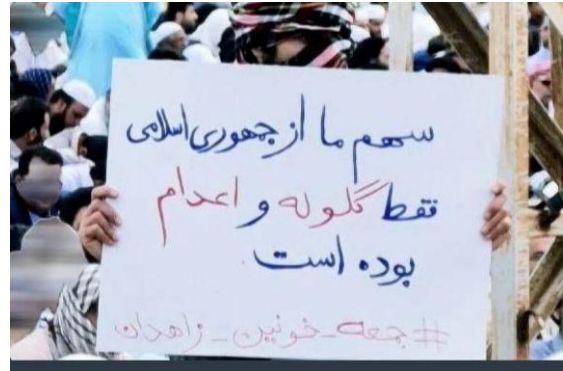 سهم ما از جمهوری اسلامی
فقط گلوله و اعدام
بوده است.
#جمعه_خونین_زاهدان